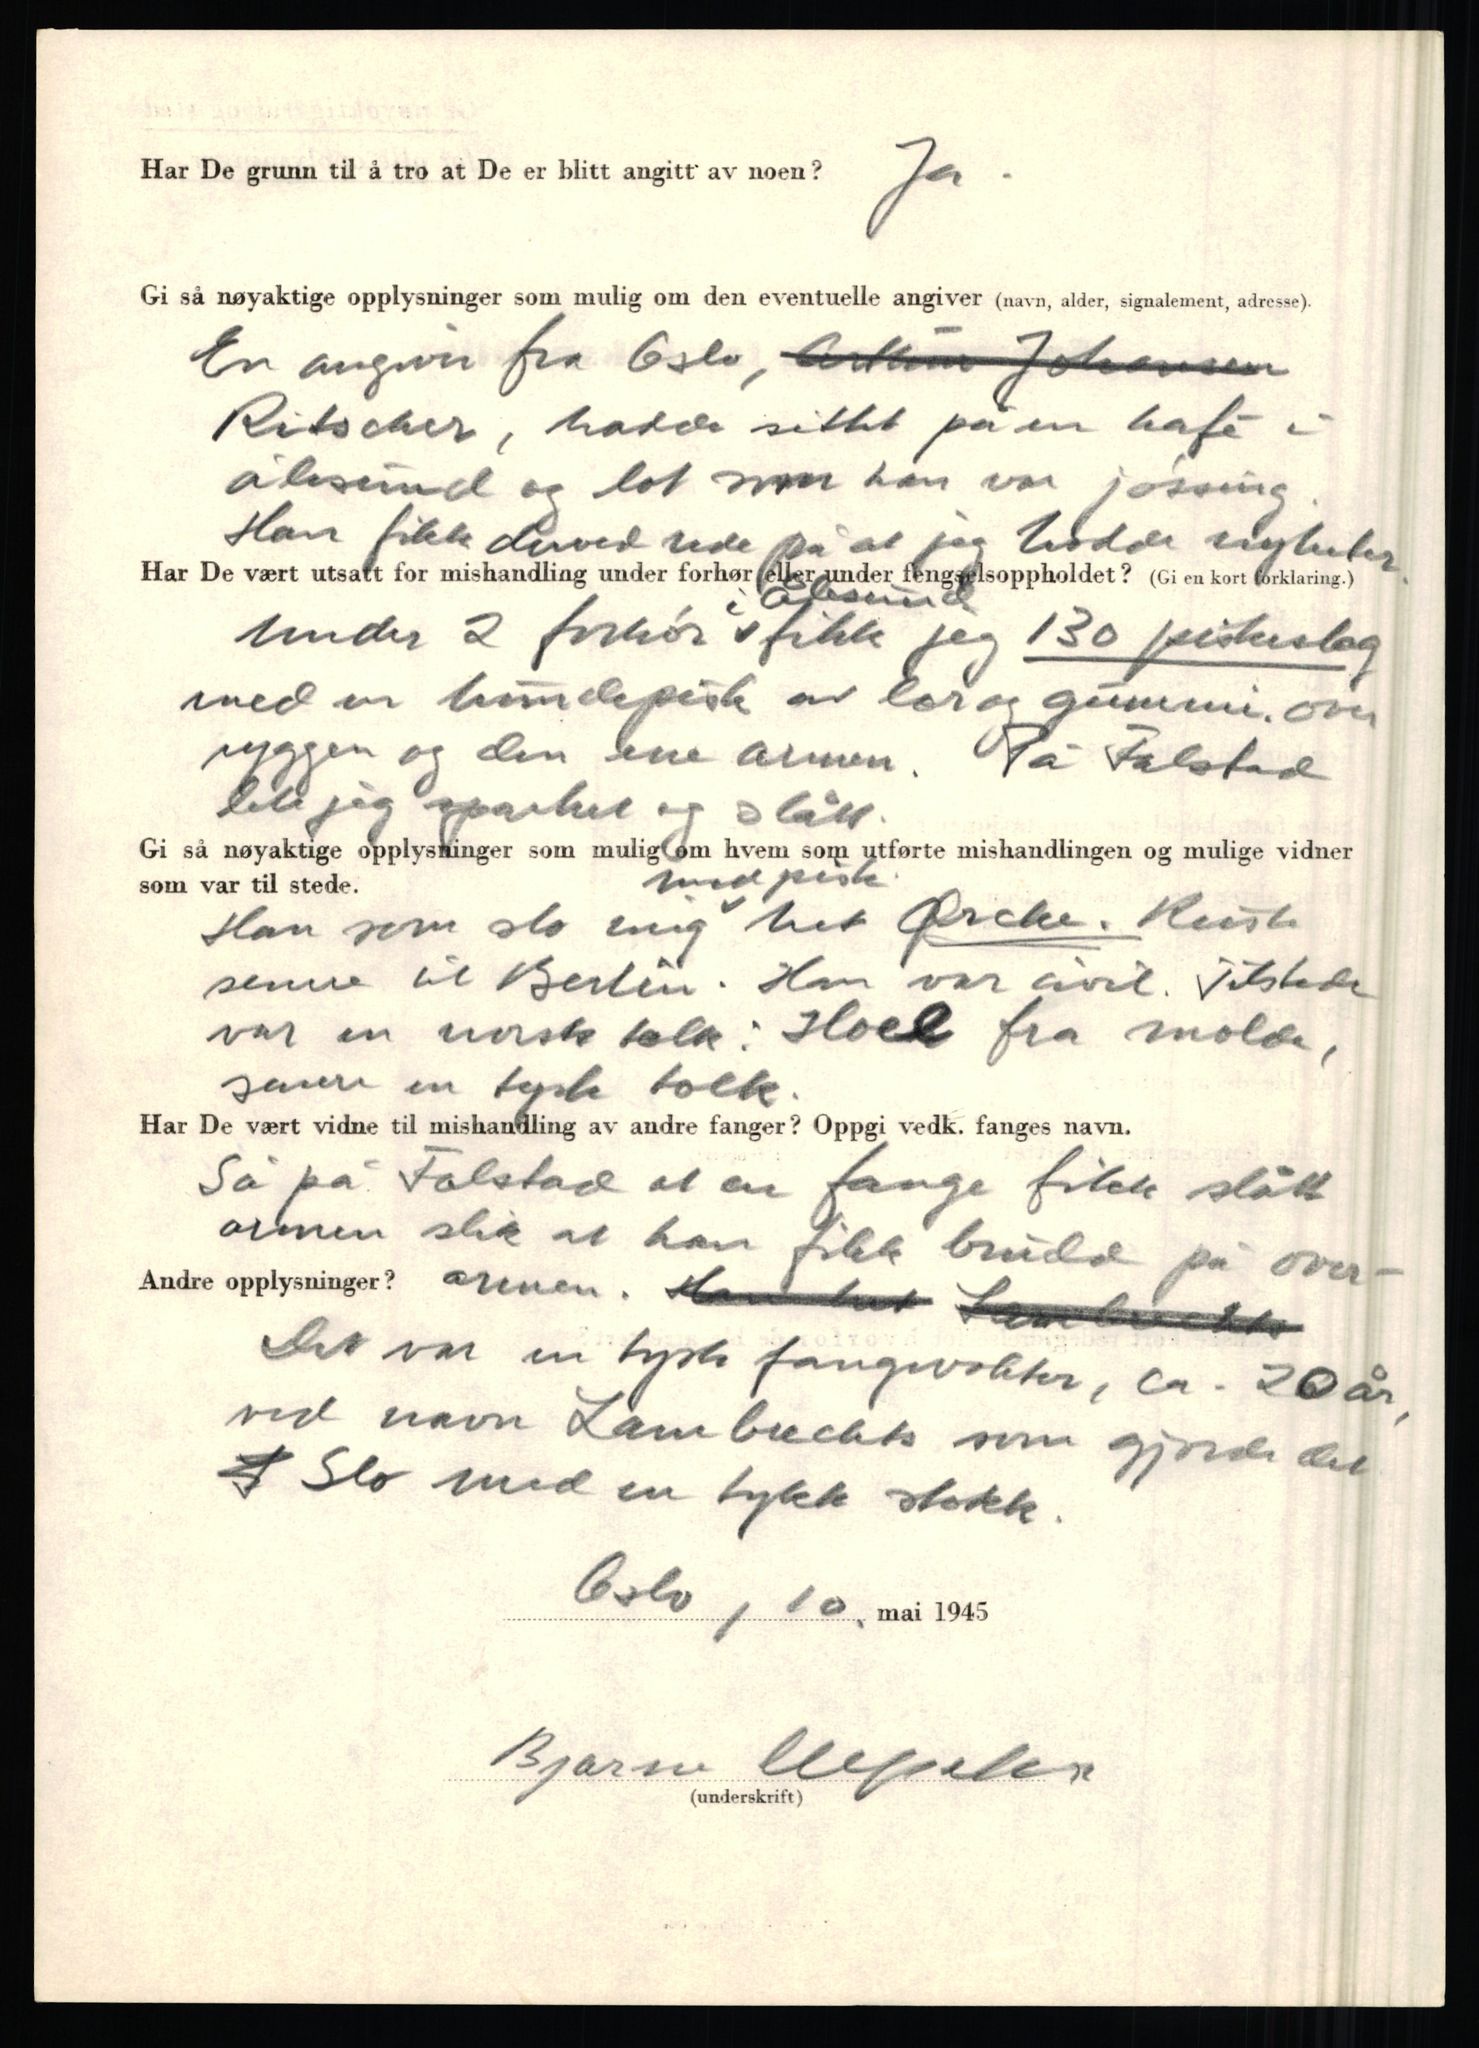 Har De grunn til å tro at De er blitt angitt av noen? Ja.
Gi så nøyaktige opplysninger som mulig om den eventuelle angiver (navn, alder, signalement, adresse).
En angiver fra Oslo, Arthur Johansen
Ritscher, hadde sittet på en kafé i
Ålesund og lot som han var jøssing.
Han fikk derved rede på at jeg hadde nyheter.
Har De vært utsatt for mishandling under forhør eller under fengselsoppholdet? (Gi en kort forklaring.)
i Ålesund
Under 2 forhør fikk jeg 130 piskeslag
med en hundepisk av lær og gummi over
ryggen og den ene armen. På Falstad
ble jeg sparket og slått.
Gi så nøyaktige opplysninger som mulig om hvem som utførte mishandlingen og mulige vidner
som var til stede.
med pisk
Han som slo mig het Orcke. Reiste
senere til Berlin. Han var civil. Tilstede
var en norsk tolk: Hoel fra Molde,
senere en tysk tolk.
Har De vært vidne til mishandling av andre fanger? Oppgi vedk. fanges navn.
Så på Falstad at en fange fikk slått
armen slik at han fikk brudd på over-
Andre opplysninger? armen. Han het Lambrechts
Det var en tysk fangevokter, ca. 20 år,
ved navn Lambrechts som gjorde det
Slo med en tykk stokk.
Oslo, 10. mai 1945
Bjarne
(underskrift)